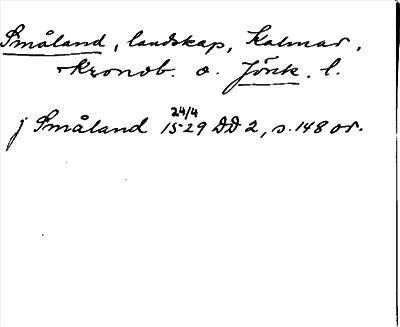 Småland, landskap, Kalmar,
Kronob. o. Jönk. l.
j Småland 24/4 1529 DD 2, s. 148 or.